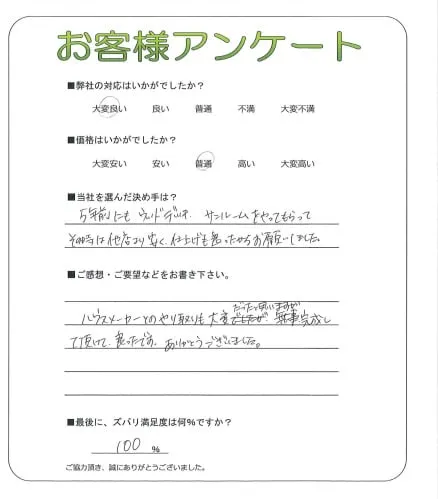 お客様アンケート
■弊社の対応はいかがでしたか？
大変良い 良い 普通 不満 大変不満
■価格はいかがでしたか？
大変安い 安い 普通 高い 大変高い
■当社を選んだ決め手は？
5年前にも ウッドデッキ、サンルームをやってもらって
その時は他店より安く、仕上げも良かったからお願いしました。
■ご感想・ご要望などをお書き下さい。
だったと思いますが
ハウスメーカーとのやり取りも大変でしたが、無事完成し
て頂けて、良かったです。ありがとうございました。
■最後に、ズバリ満足度は何％ですか？
100 ％
ご協力頂き、誠にありがとうございました。